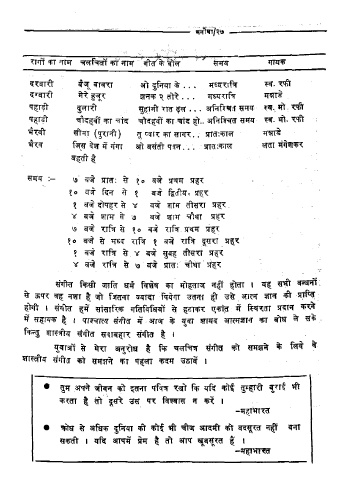 रागों का नाम चलचित्रों का नाम गीत के बोल समय गायक
दरबारी बैजू बावरा ओ दुनिया के ... मध्यरात्रि स्व. रफी
दरबारी मेरे हुजूर झनक २ तोरे ... मध्यरात्रि मन्नाडे
पहाड़ी दुलारी सुहानी रात ढ़ल ... अनिश्चित समय स्व. मो. रफी
पहाड़ी चौदहवीं का चांद चौदहवीं का चांद हो.. अनिश्चित समय स्व. मो. रफी
भैरवी सीमा (पुरानी) तू प्यार का सागर.. प्रातःकाल मन्नाडे
भैरव जिस देश में गंगा ओ बसंती पवन... प्रातःकाल लता मंगेशकर
बहती है
समय :- ७ बजे प्रातः से १० बजे प्रथम प्रहर
१० बजे दिन से १ बजे द्वितीय प्रहर
१ बजे दोपहर से ४ बजे शाम तीसरा प्रहर
४ बजे शाम से ७ बजे शाम चौथा प्रहर
७ बजे रात्रि से १० बजे रात्रि प्रथम प्रहर
१० बजे से मध्य रात्रि १ बजे रात्रि दूसरा प्रहर
१ बजे रात्रि से ४ बजे सुबह तीसरा प्रहर
४ बजे रात्रि से ७ बजे प्रातः चौथा प्रहर
संगीत किसी जाति धर्म विशेष का मोहताज नहीं होता । यह सभी बन्धनों
से ऊपर वह नशा है जो जितना ज्यादा पियेगा उतना ही उसे आत्म ज्ञान की प्राप्ति
होगी । संगीत हमें सांसारिक गतिविधियों से हटाकर एकांत में स्थिरता प्रदान करने
में सहायक है । पाश्चात्य संगीत में आज के युवा शायद आत्मज्ञान का बोध ले सकें
किन्तु शास्त्रीय संगीत सदाबहार संगीत है ।
युवाओं से मेरा अनुरोध है कि चलचित्र संगीत को समझने के लिये वे
शास्त्रीय संगीत को समझने का पहला कदम उठावें ।
● तुम अपने जीवन को इतना पवित्र रखो कि यदि कोई तुम्हारी बुराई भी
करता है तो दूसरे उस पर विश्वास न करें ।
-महाभारत
● क्रोध से अधिक दुनिया की कोई भी चीज आदमी को बदसूरत नहीं बना
सकती । यदि आपमें प्रेम है तो आप खूबसूरत हैं ।
-महाभारत